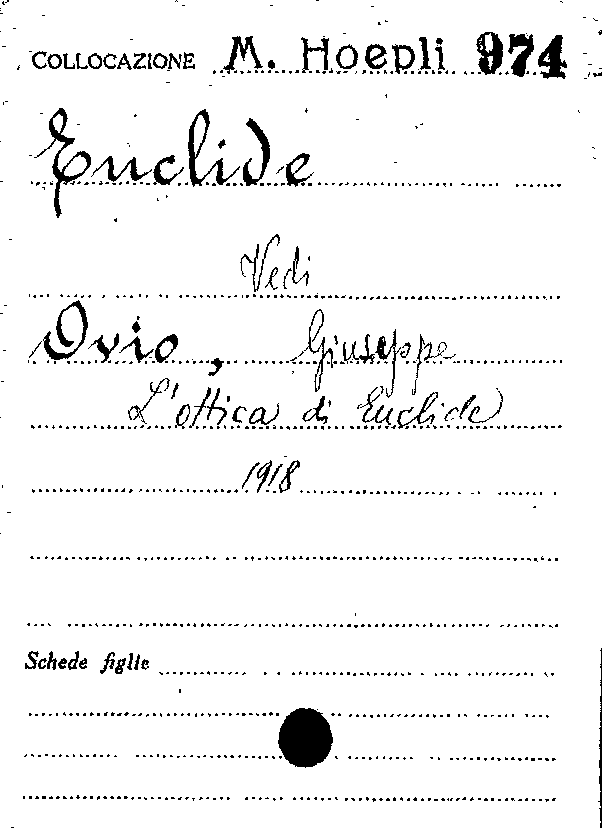 COLLOCAZIONE M. Hoepli 974
Euclide
Vedi
Ovio, Giuseppe
L'ottica di Euclide
1918
Schede figlie